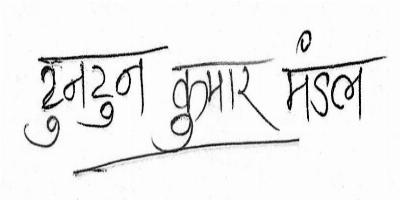 टुनटुन कुमार मंडल